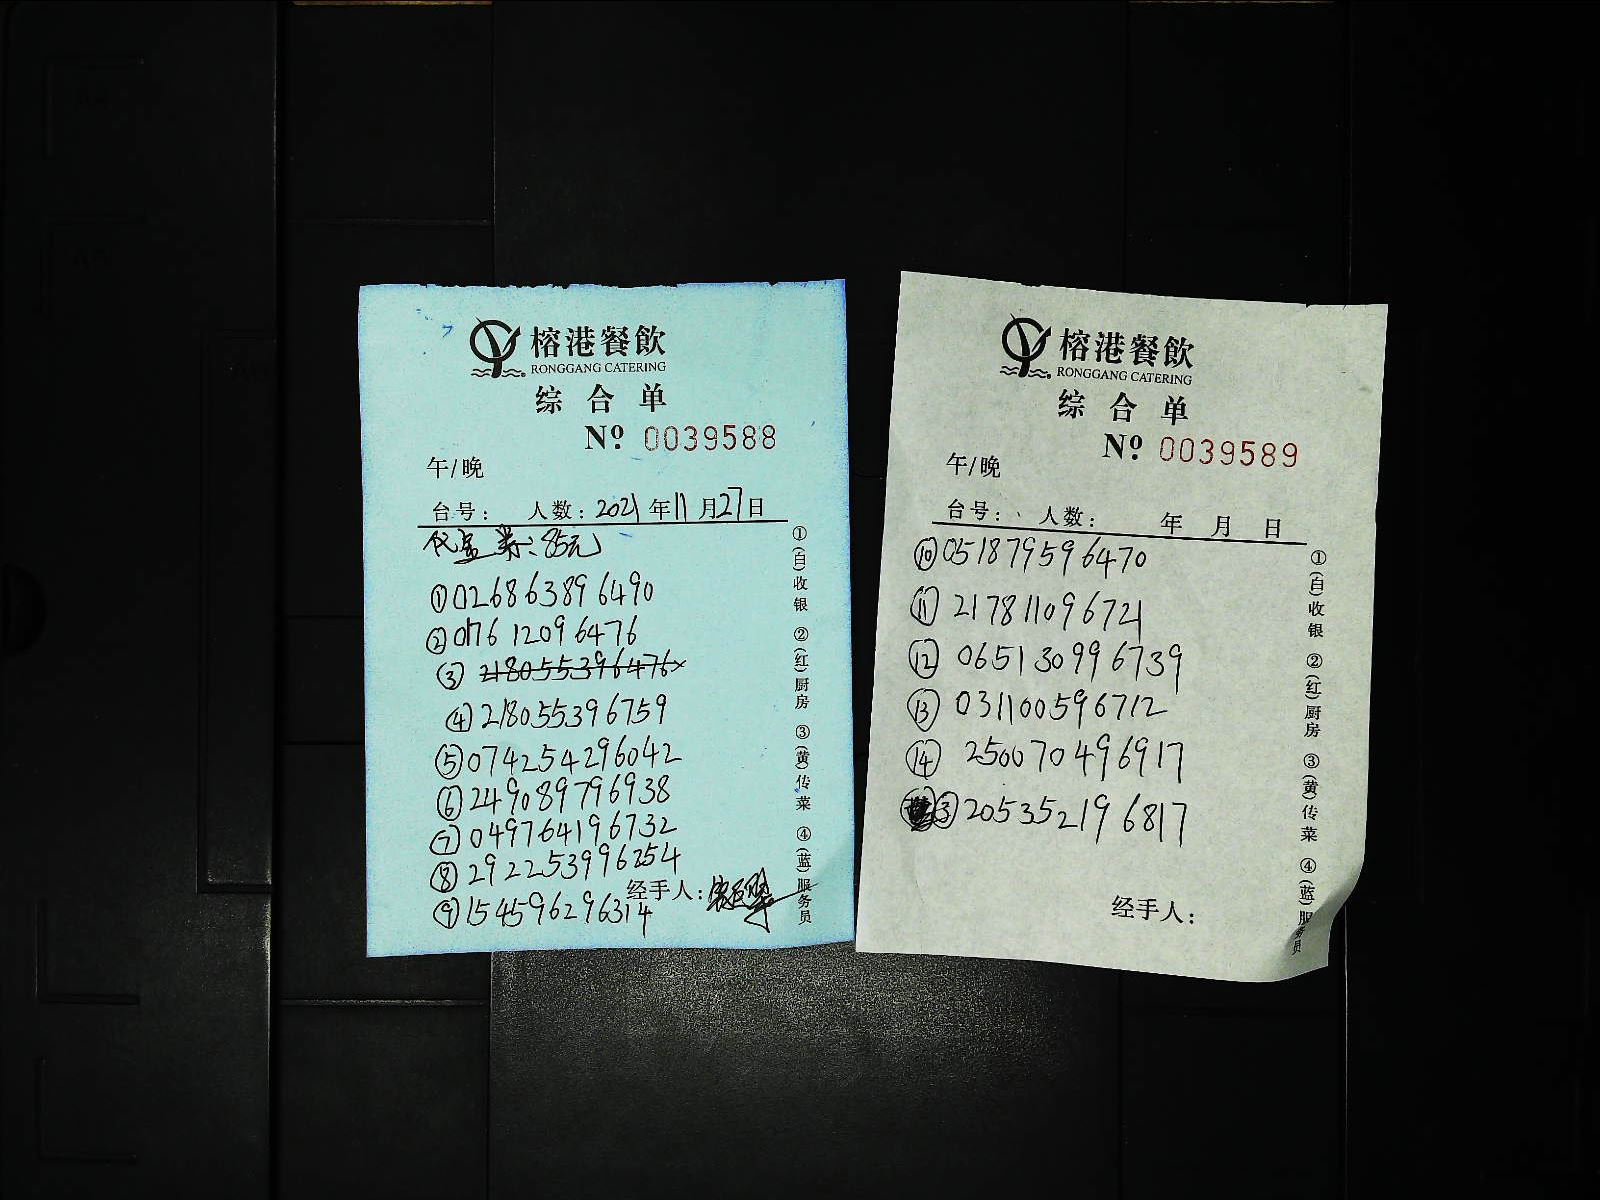 榕港餐飲
RONGGANG CATERING
综合单
Nº 0039588
午/晚
台号: 人数: 2021年11月27日
代金券:85元
①026863896490
②017612096476
③218055396476
④218055396759
⑤074254296042
⑥249089796938
⑦049764196732
⑧292253996254
⑨154596296314
经手人:
①(白)收银 ②(红)厨房 ③(黄)传菜 ④(蓝)服务员
榕港餐飲
RONGGANG CATERING
综合单
Nº 0039589
午/晚
台号: 人数: 年 月 日
⑩051879596470
⑪217811096721
⑫065130996739
⑬031100596712
⑭250070496917
③205352196817
经手人:
①(白)收银 ②(红)厨房 ③(黄)传菜 ④(蓝)服务员